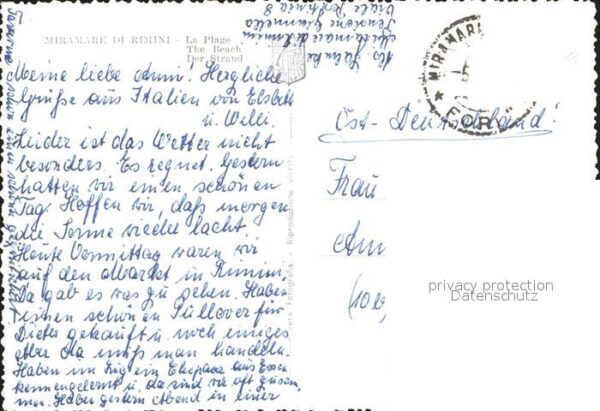 MIRAMARE DI RIMINI - La Plage
The Beach
Der Strand
Meine liebe Anni! Herzliche
Grüße aus Italien von Elsbeth
u. Willi.
Leider ist das Wetter nicht
besonders. Es regnet. Gestern
hatten wir einen schönen
Tag. Hoffen wir, daß morgen
die Sonne wieder lacht.
Heute Vormittag waren wir
auf dem Markt in Rimini.
Da gab es was zu sehen. Haben
einen schönen Pullover für
Dieter gekauft u. noch einiges
Aber da muß man handeln.
Haben im Zug ein Ehepaar aus
kennengelernt u. da sind wir oft zusam-
men. Haben gestern Abend in einer
Miramare di Rimini
MIRAMARE
FOR
Ost-Deutschland!
Frau
Ann
(10b)
privacy protection
Datenschutz
Fotografia - Riproduzione vietata